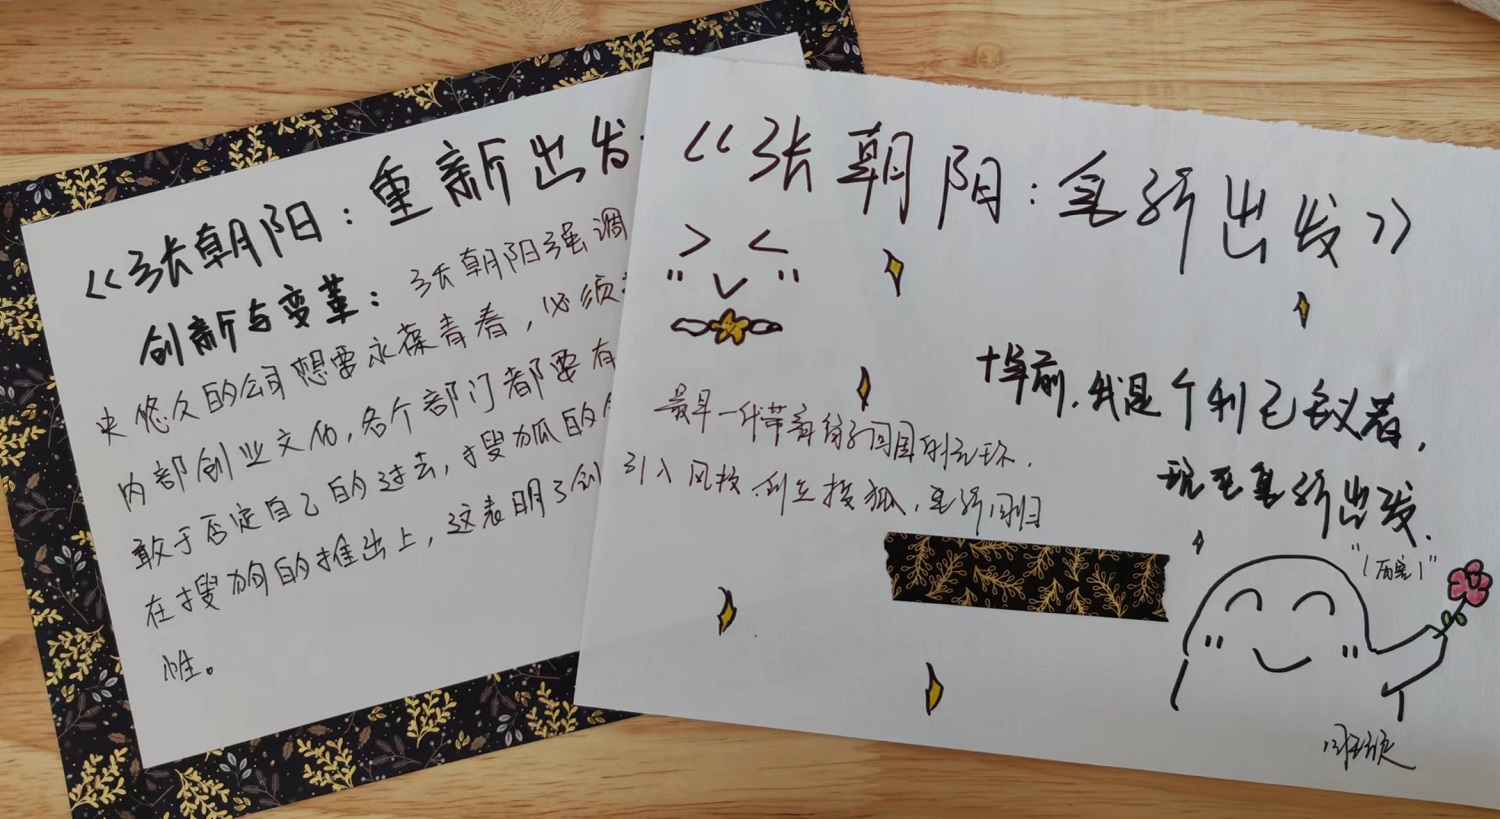 《张朝阳：重新出发
创新与变革：张朝阳强调
史悠久的公司想要永葆青春，必须
内部创业文化，各个部门都要有
敢于否定自己的过去，搜狐的
在搜狗的推出上，这表明了创
性。
《张朝阳：重新出发》
十年前，我是个利己主义者，
现在重新出发.
最早一代带着
引入风投.创立搜狐，重新回归
"(厉害)"